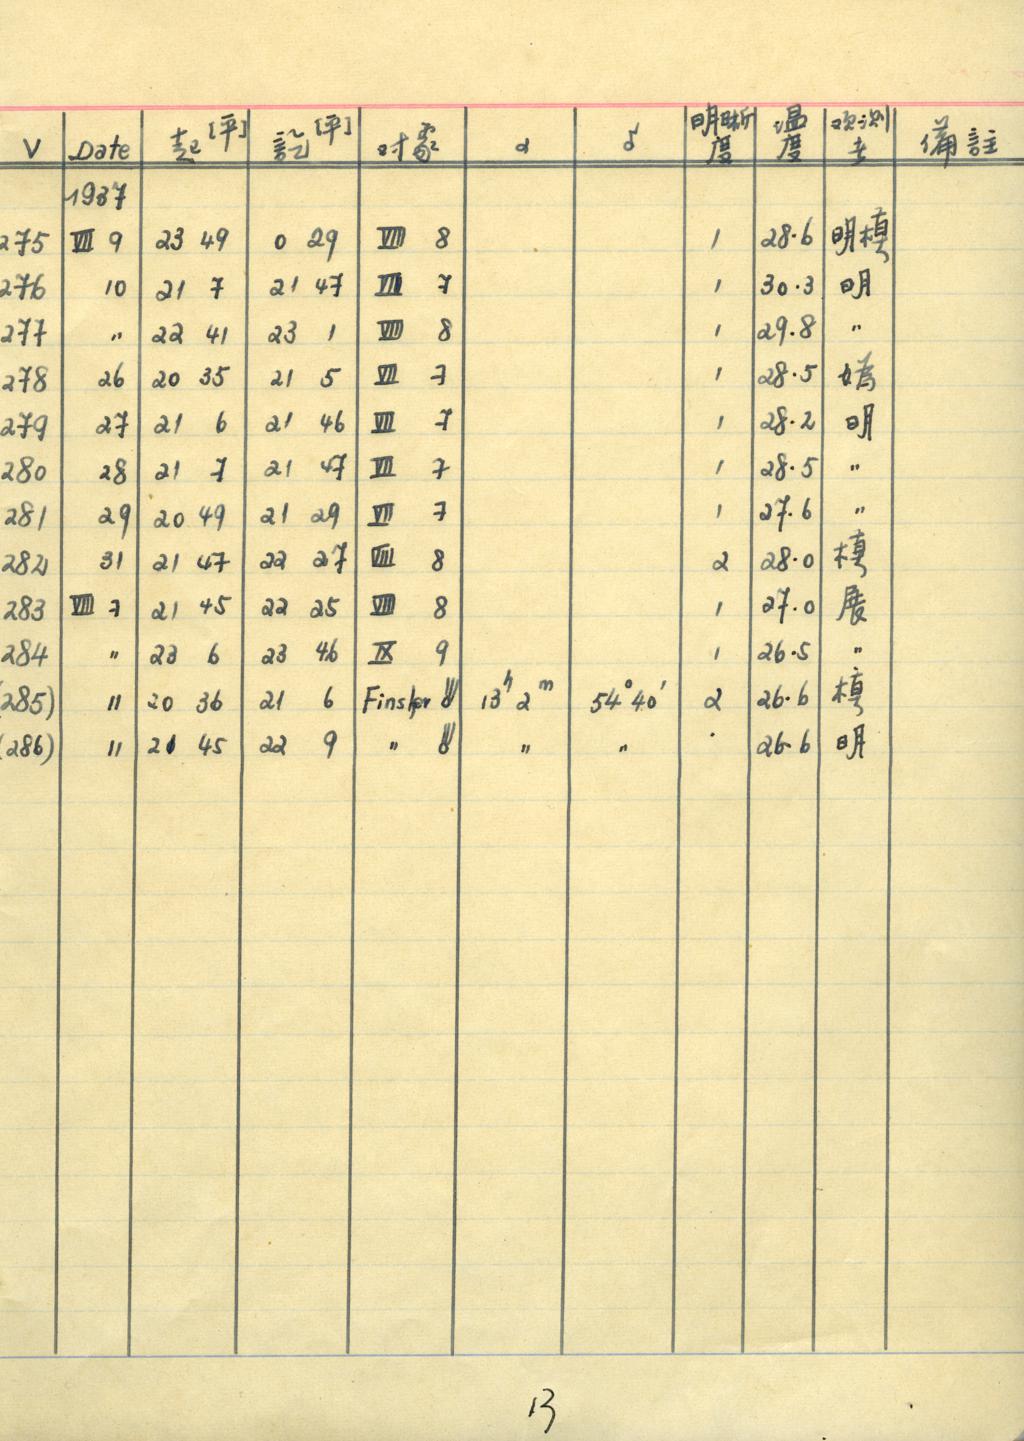 V Date 起[平] 訖[平] 对象 α δ 明晰度 温度 观测者 備註
1937
275 VII 9 23 49 0 29 VIII 8 1 28.6 明模
276 10 21 7 21 47 VII 7 1 30.3 明
277 " 22 41 23 1 VIII 8 1 29.8 "
278 26 20 35 21 5 VII 7 1 28.5
279 27 21 6 21 46 VII 7 1 28.2 明
280 28 21 7 21 47 VII 7 1 28.5 "
281 29 20 49 21 29 VII 7 1 27.6 "
282 31 21 47 22 27 VIII 8 2 28.0 模
283 VIII 7 21 45 22 25 VIII 8 1 27.0 展
284 " 23 6 23 46 IX 9 1 26.5 "
(285) " 20 36 21 6 Finsler 13h 2m 54° 40' 2 26.6 模
(286) " 21 45 22 9 " " " 26.6 明
13